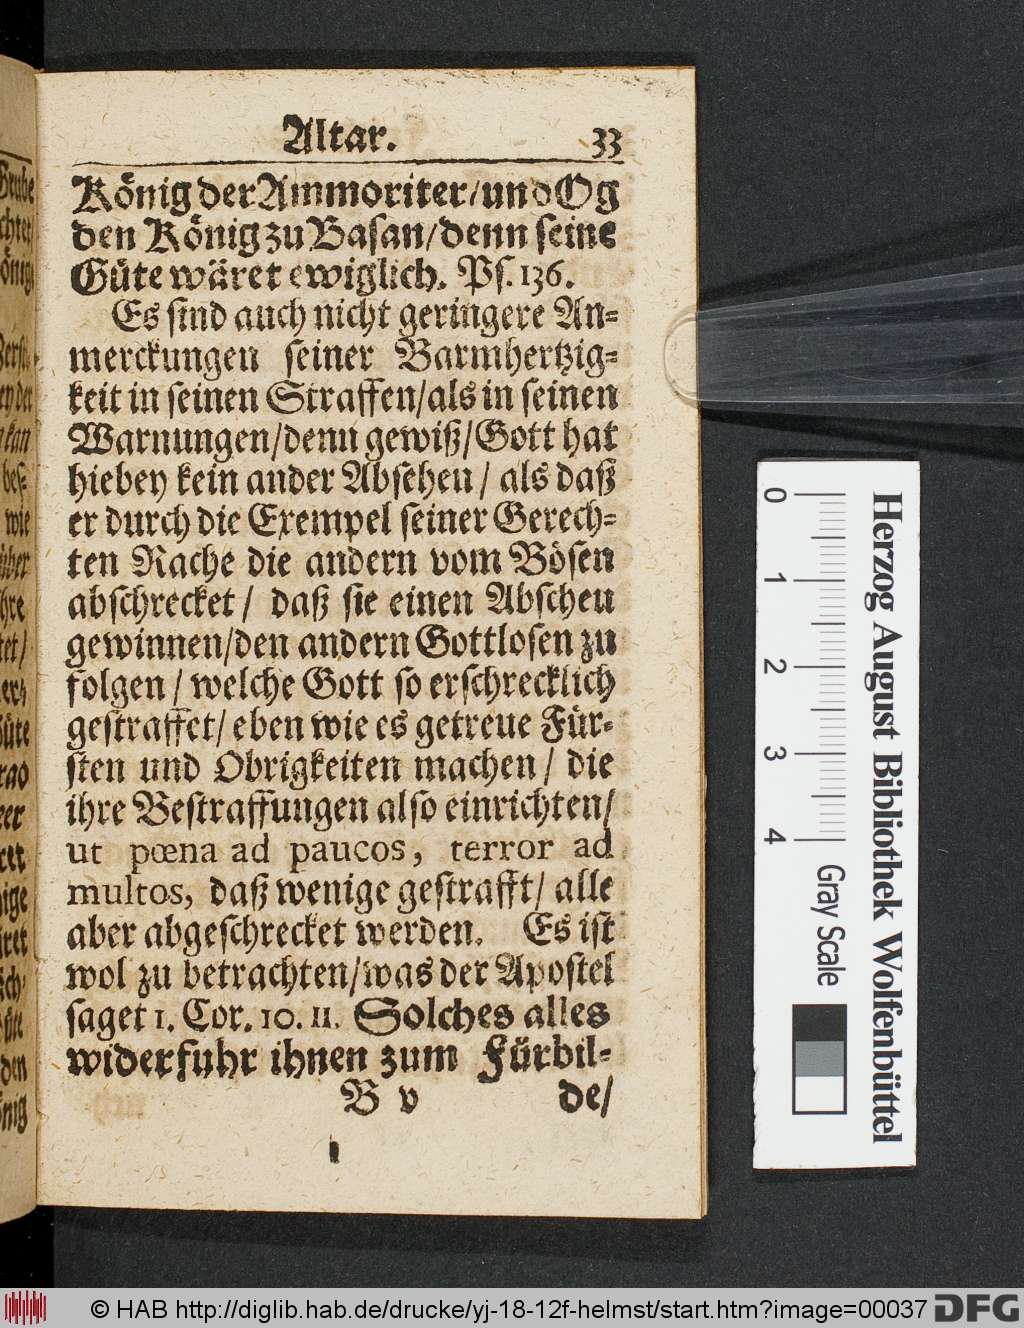 Altar. 33
König der Ammoriter/und Og
den König zu Basan/denn seine
Güte wäret ewiglich. Ps. 136.
Es sind auch nicht geringere An=
merckungen seiner Barmhertzig=
keit in seinen Straffen/als in seinen
Warnungen/denn gewiß/Gott hat
hiebey kein ander Absehen/ als daß
er durch die Exempel seiner Gerech=
ten Rache die andern vom Bösen
abschrecket/ daß sie einen Abscheu
gewinnen/den andern Gottlosen zu
folgen/ welche Gott so erschrecklich
gestraffet/ eben wie es getreue Für=
sten und Obrigkeiten machen/ die
ihre Bestraffungen also einrichten/
ut pœna ad paucos, terror ad
multos, daß wenige gestrafft/ alle
aber abgeschrecket werden. Es ist
wol zu betrachten/was der Apostel
saget 1. Cor. 10. 11. Solches alles
widerfuhr ihnen zum Fürbil=
B v de/
Herzog August Bibliothek Wolfenbüttel
0 1 2 3 4 Gray Scale
© HAB http://diglib.hab.de/drucke/yj-18-12f-helmst/start.htm?image=00037 DFG